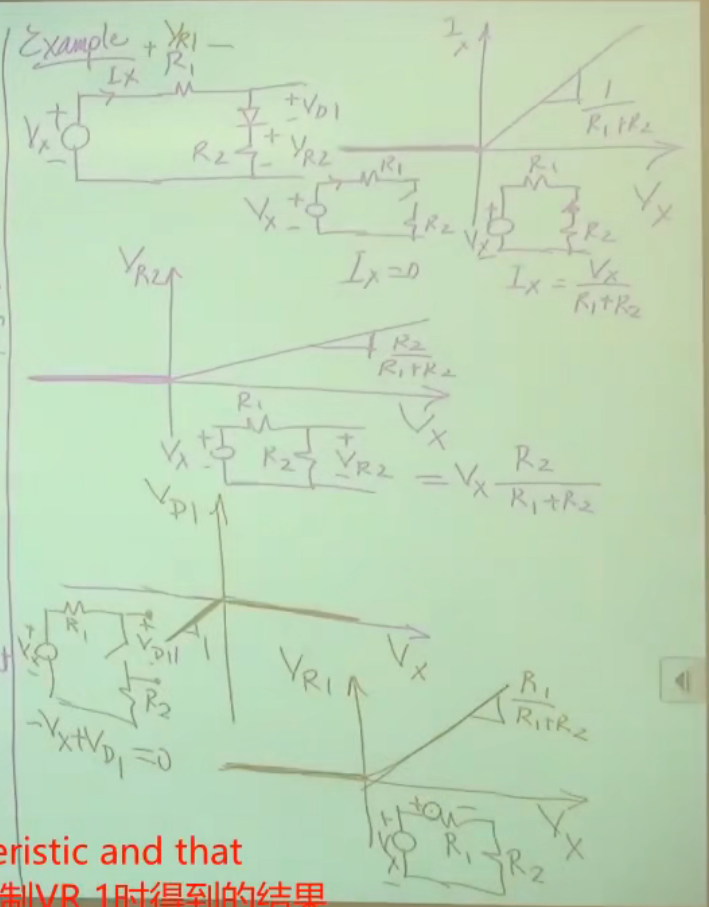 Example
+ VR1 −
R1
IX
VX
+
−
+ VD1
−
R2
+ VR2
−
IX
1
R1+R2
VX
R1
VX
+
−
R2
IX = 0
R1
VX
+
−
R2
IX = VX
R1+R2
VR2
R2
R1+R2
VX
R1
VX
+
−
R2
+
VR2
−
= VX R2
R1+R2
VD1
1
VX
R1
VX
+
−
+
VD1
−
R2
−VX+VD1 = 0
VR1
R1
R1+R2
VX
+ −
+
VX
−
R1
R2
eristic and that
制VR 1时得到的结果